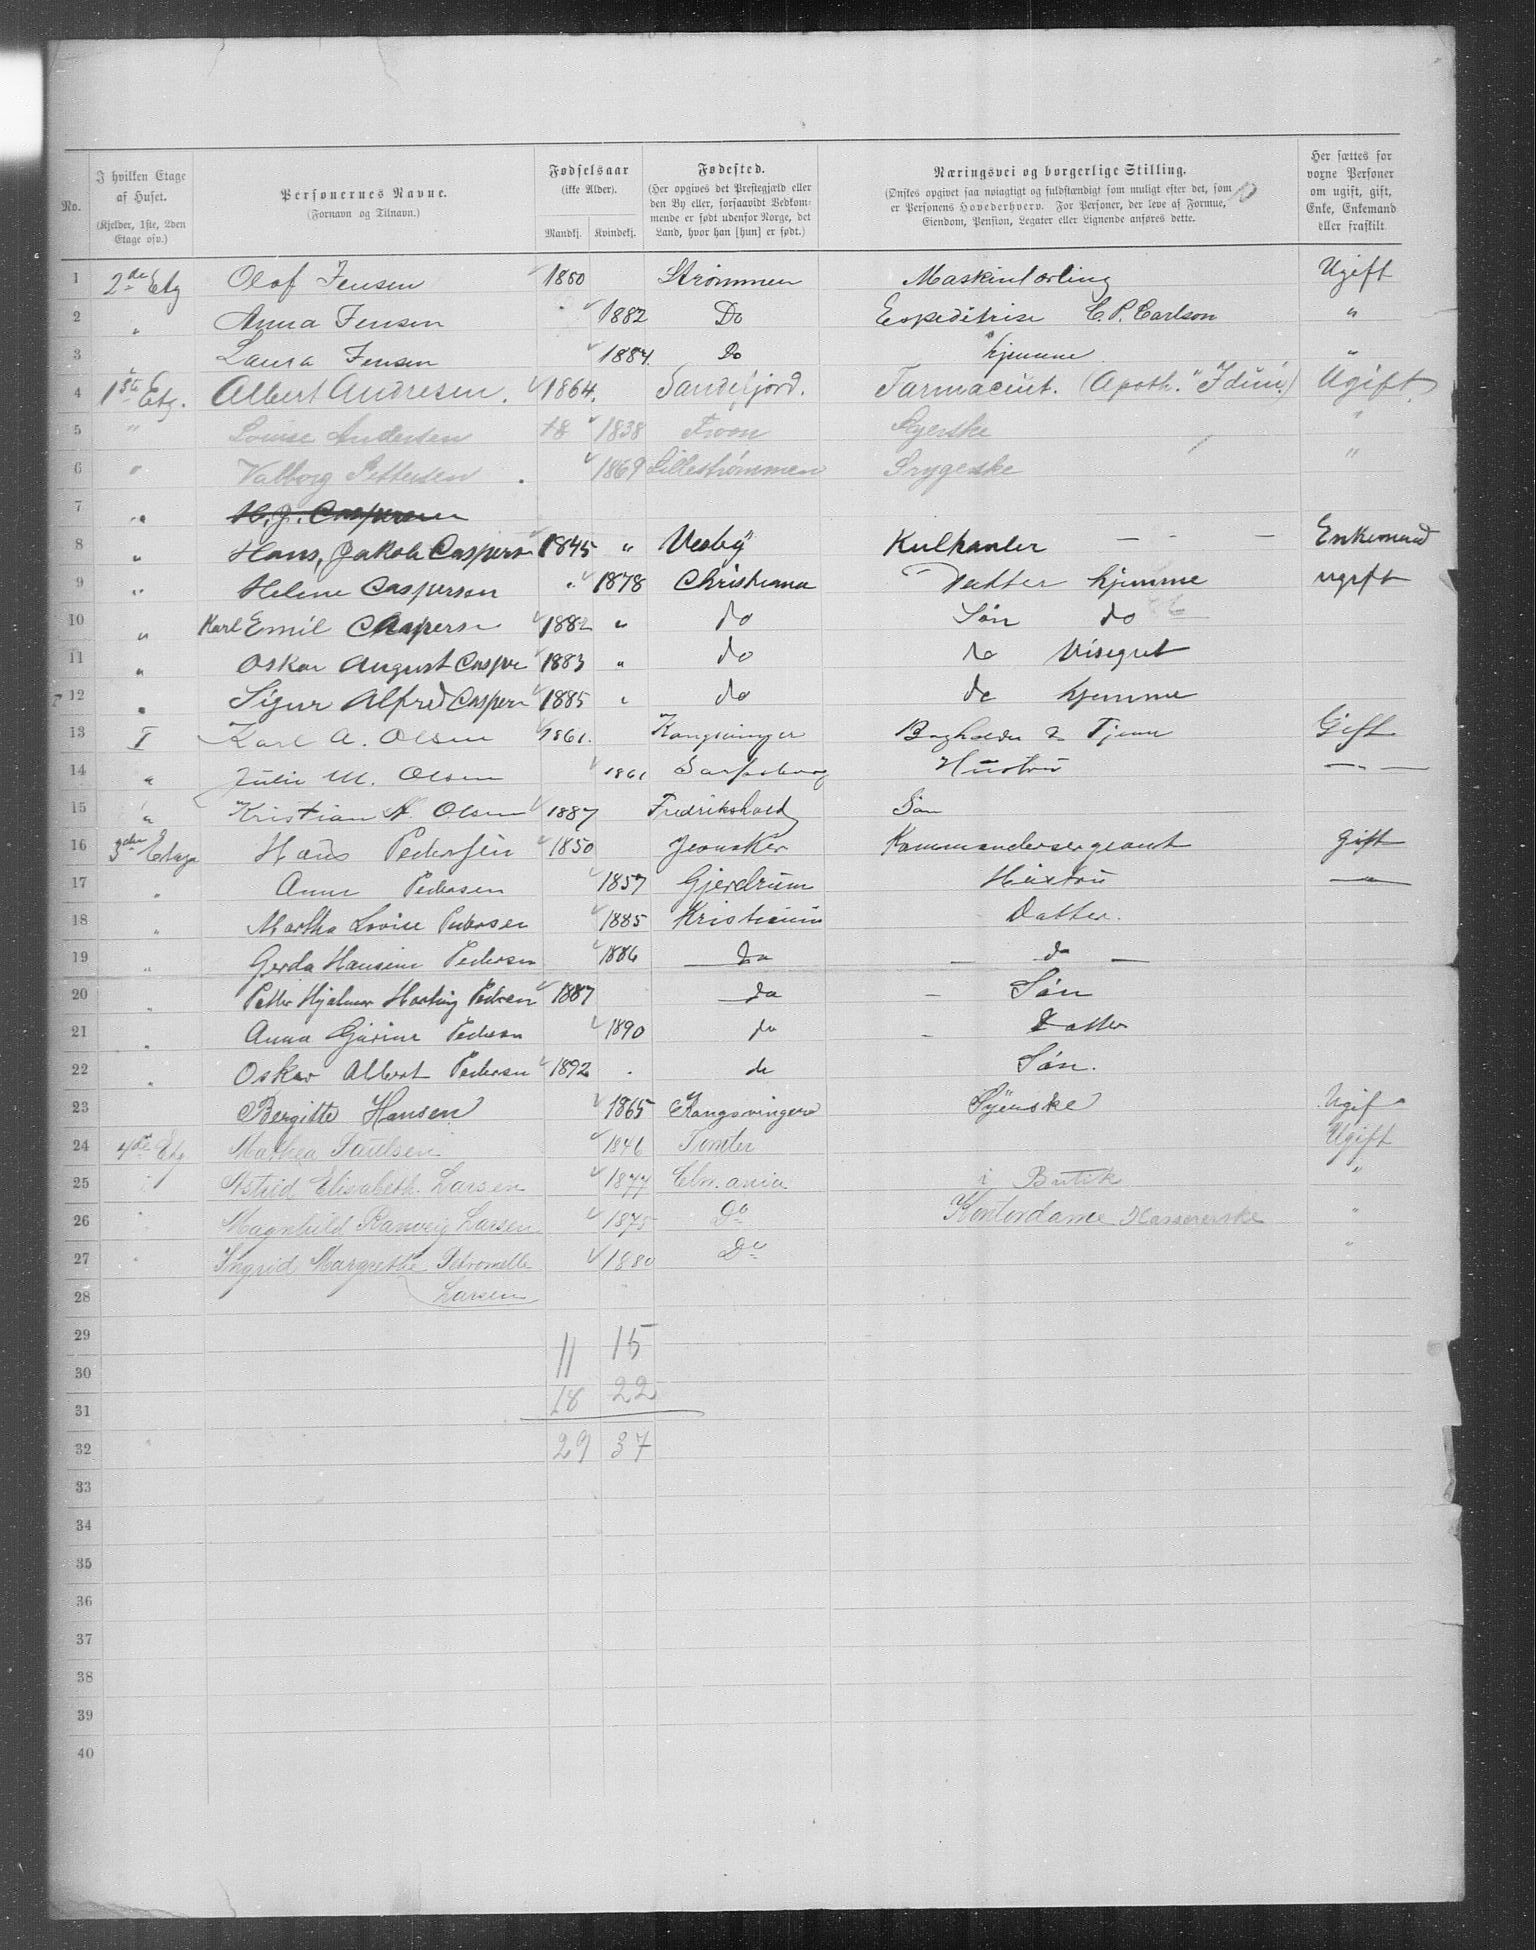 No.
I hvilken Etage af Huset. (Kjelder, 1ste, 2den Etage osv.)
Personernes Navne. (Fornavn og Tilnavn.)
Fødselsaar (ikke Alder). Mandkj. Kvindekj.
Fødested. (Her opgives det Prestegjæld eller den By eller, forsaavidt Vedkommende er født udenfor Norge, det Land, hvor han [hun] er født.)
Næringsvei og borgerlige Stilling. (Ønskes opgivet saa nøiagtigt og fuldstændigt som muligt efter det, som er Personens Hovederhverv. For Personer, der leve af Formue, Eiendom, Pension, Legater eller Lignende anføres dette.
Her sættes for voxne Personer om ugift, gift, Enke, Enkemand eller fraskilt.
1 2de Etg Olaf Jensen 1880 Strømmen Maskinlærling Ugift
2 " Anna Jensen 1882 Do Expeditrise C.P. Carlson "
3 Laura Jensen 1884. Do hjemme "
4 1ste Etg. Albert Andresen. 1864. Sandefjord. Farmaceut. (Apoth. "Idun".) Ugift
5 " Louise Andersen 1838 Syerske "
6 " Valborg Pettersen 1869 Lillestrømmen Strygerske "
7 " H. J. Caspersen
8 " Hans, Jakob Caspers 1845 " Vesby Kulhanler - - - Enkemand
9 " Helene Caspersen 1878 Christiania Datter hjemme ugift
10 " Karl Emil Caspers 1882 " do Søn do
11 " Oskar August Casper 1883 " do do Visegut
12 " Sigur Alfred Casper 1885 " do do hjemme
13 I Karl A. Olsen 1861. Kongsvinger Bogholder Gift
14 " Julie M. Olsen 1861 Sarpsborg Hustru — " —
15 " Kristian A. Olsen 1887 Fredrikshald Søn
16 3die Etage Hans Pedersen 1850 Jevnaker Kommandersergeant gift
17 " Anne Pedersen 1857 Gjerdrum Hustru — " —
18 " Martha Lovise Pedersen 1885 Kristiania Datter.
19 " Gerda Hansine Pedersen 1886 do — do —
20 " Petter Hjalmar Pedersen 1887 do - Søn
21 " Anna Pedersen 1890 do - Datter
22 " Oskar Albert Pedersen 1892 do Søn.
23 Bergitte Hansen 1865 Kongsvinger Syerske Ugif
24 4de Etg Mathea Paulsen 1846 Tomter Ugift
25 Astrid Elisabeth Larsen 1877 Chr.ania i Butik "
26 Magnhild Ranveig Larsen 1875 Do Kontordame Kassererske "
27 Ingrid Margrethe Petronelle 1880 Do "
28 Larsen
29 11 15
30
31 18 22
32 29 37
33
34
35
36
37
38
39
40